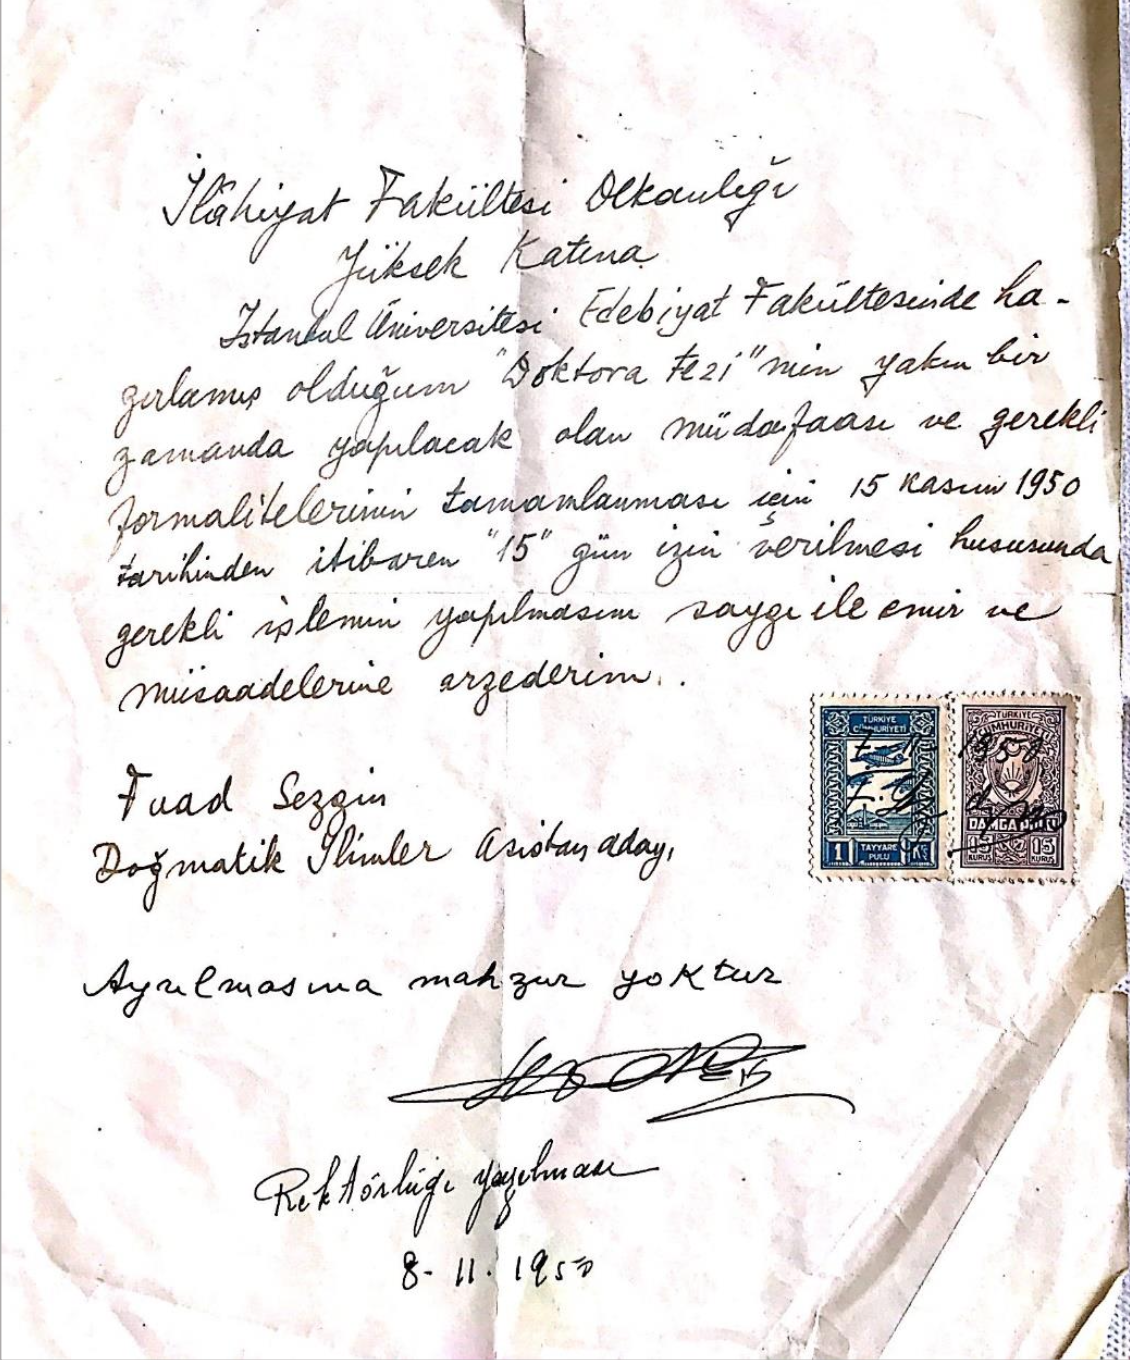 İlâhiyat Fakültesi Dekanlığı
Yüksek Katına
İstanbul Üniversitesi Edebiyat Fakültesinde ha-
zırlamış olduğum "Doktora tezi"min yakın bir
zamanda yapılacak olan müdafaası ve gerekli
formalitelerinin tamamlanması için 15 Kasım 1950
tarihinden itibaren "15" gün izin verilmesi hususunda
gerekli işlemin yapılmasını saygı ile emir ve
müsaadelerine arzederim..
TÜRKİYE
CÜMHURİYETİ
1 TAYYARE
PULU
KŞ
TÜRKİYE
CUMHURİYETİ
1950
DAMGA PULU
15 15
KURUŞ KURUŞ
Fuad Sezgin
Doğmatik İlimler Asistan adayı
Ayrılmasına mahzur yoktur
Rektörlüğe yazılması
8-11.1950